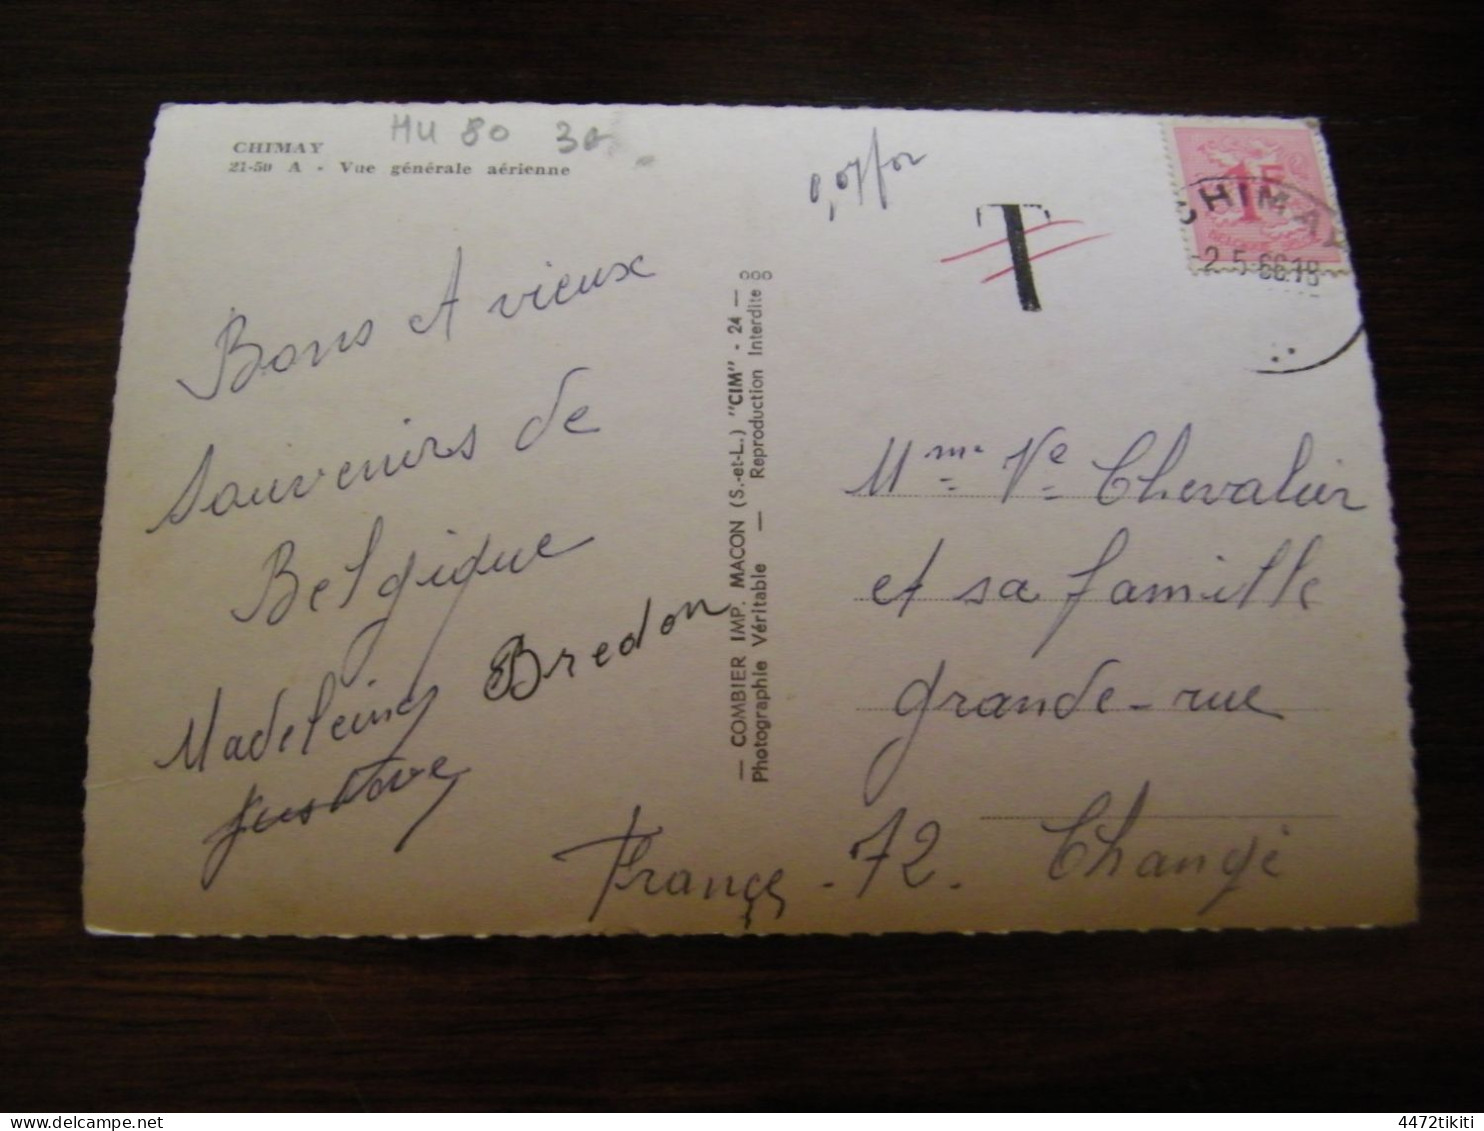 CHIMAY
21-50 A - Vue générale aérienne
HU 80 30
0,07 for
T
1F
CHIMAY
-2.5.66.18
Bons et vieux
souvenirs de
Belgique
Madeleine Bredon
Gustave
— COMBIER IMP. MACON (S.-et-L.) "CIM" - 24 —
Photographie Véritable — Reproduction Interdite
Mme Ve Chevalier
et sa famille
grande-rue
France - 72. Changé
4472tikiti